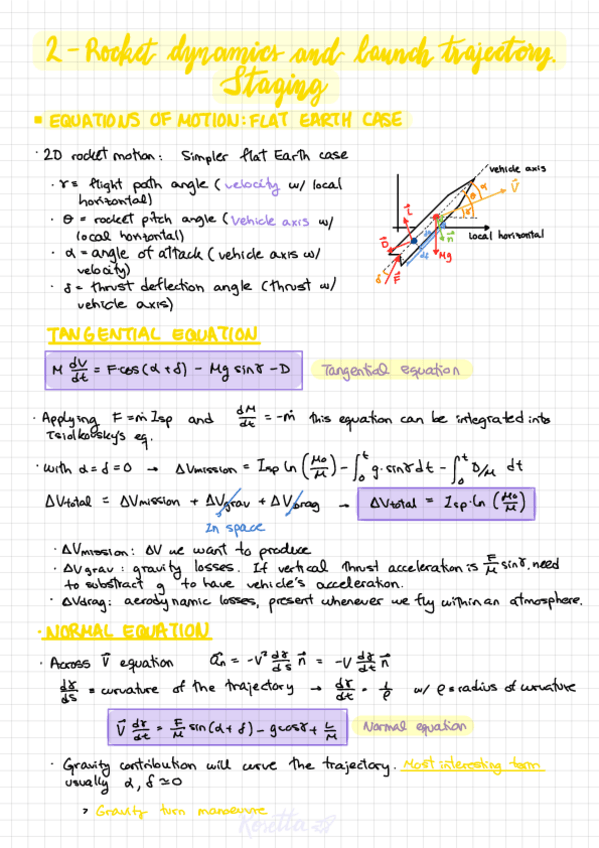 2 - Rocket dynamics and launch trajectory.
Staging
▪ EQUATIONS OF MOTION: FLAT EARTH CASE
· 2D rocket motion: Simpler flat Earth case
· γ = flight path angle (velocity w/ local
horizontal)
· θ = rocket pitch angle (vehicle axis w/
local horizontal)
· α = angle of attack (vehicle axis w/
velocity)
· δ = thrust deflection angle (thrust w/
vehicle axis)
vehicle axis
α
θ
γ
V⃗
L⃗
n⃗
local horizontal
D⃗
Mg
δ
F⃗
TANGENTIAL EQUATION
M dV/dt = F·cos(α+δ) - Mg sinγ - D
Tangential equation
· Applying F = ṁ Isp and dM/dt = -ṁ this equation can be integrated into
Tsiolkovsky's eq.
· with α = δ = 0 → ΔVmission = Isp ln (M0/M) - ∫₀ᵗ g·sinγ dt - ∫₀ᵗ D/M dt
ΔVtotal = ΔVmission + ΔVgrav + ΔVdrag → ΔVtotal = Isp·ln (M0/M)
In space
· ΔVmission: ΔV we want to produce
· ΔVgrav: gravity losses. If vertical thrust acceleration is F/M sinγ, need
to substract g to have vehicle's acceleration.
· ΔVdrag: aerodynamic losses, present whenever we fly within an atmosphere.
· NORMAL EQUATION
· Across V⃗ equation a⃗n = -V² dγ/ds n⃗ = -V dγ/dt n⃗
dγ/ds = curvature of the trajectory → dγ/dt = 1/ρ w/ ρ = radius of curvature
V⃗ dγ/dt = F/M sin(α+δ) - gcosγ + L/M
Normal equation
· Gravity contribution will curve the trajectory. Most interesting term
usually α, δ ≃ 0
> Gravity turn manoeuvre
Rosetta